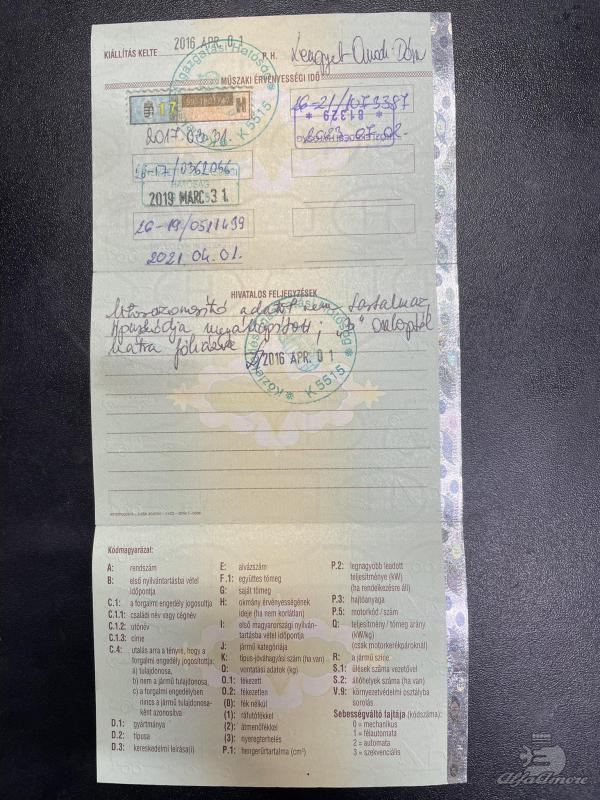 KIÁLLÍTÁS KELTE 2016 ÁPR. 01 P. H.
MŰSZAKI ÉRVÉNYESSÉGI IDŐ
17 H
2017.03.31.
K 5515
16-21/1073387
* 81329 *
2023.07.02.
16-17/0362066
HATÓSÁG
2019 MARC 31.
16-19/0511499
2021.04.01.
HIVATALOS FELJEGYZÉSEK
adatot nem tartalmaz,
hátra
2016 ÁPR. 01
Közlekedési Igazgatási Hatóság
K 5515
Kódmagyarázat:
A: rendszám
B: első nyilvántartásba vétel
időpontja
C.1: a forgalmi engedély jogosultja
C.1.1: családi név vagy cégnév
C.1.2: utónév
C.1.3: címe
C.4: utalás arra a tényre, hogy a
forgalmi engedély jogosultja:
a) tulajdonosa,
b) nem a jármű tulajdonosa,
c) a forgalmi engedélyben
nincs a jármű tulajdonosa-
ként azonosítva
D.1: gyártmánya
D.2: típusa
D.3: kereskedelmi leírása(i)
E: alvázszám
F.1: együttes tömeg
G: saját tömeg
H: okmány érvényességének
ideje (ha nem korlátlan)
I: első magyarországi nyilván-
tartásba vétel időpontja
J: jármű kategóriája
K: típus-jóváhagyási szám (ha van)
O: vontatási adatok (kg)
O.1: fékezett
O.2: fékezetlen
(0): fék nélkül
(1): ráfutófékkel
(2): átmenőfékkel
(3): nyergterhelés
P.1: hengerűrtartalma (cm³)
P.2: legnagyobb leadott
teljesítménye (kW)
(ha rendelkezésre áll)
P.3: hajtóanyaga
P.5: motorkód / szám
Q: teljesítmény / tömeg arány
(kW/kg)
(csak motorkerékpároknál)
R: a jármű színe
S.1: ülések száma vezetővel
S.2: állóhelyek száma (ha van)
V.9: környezetvédelmi osztályba
sorolás
Sebességváltó fajtája (kódszáma):
0 = mechanikus
1 = félautomata
2 = automata
3 = szekvenciális
AlfaAmore